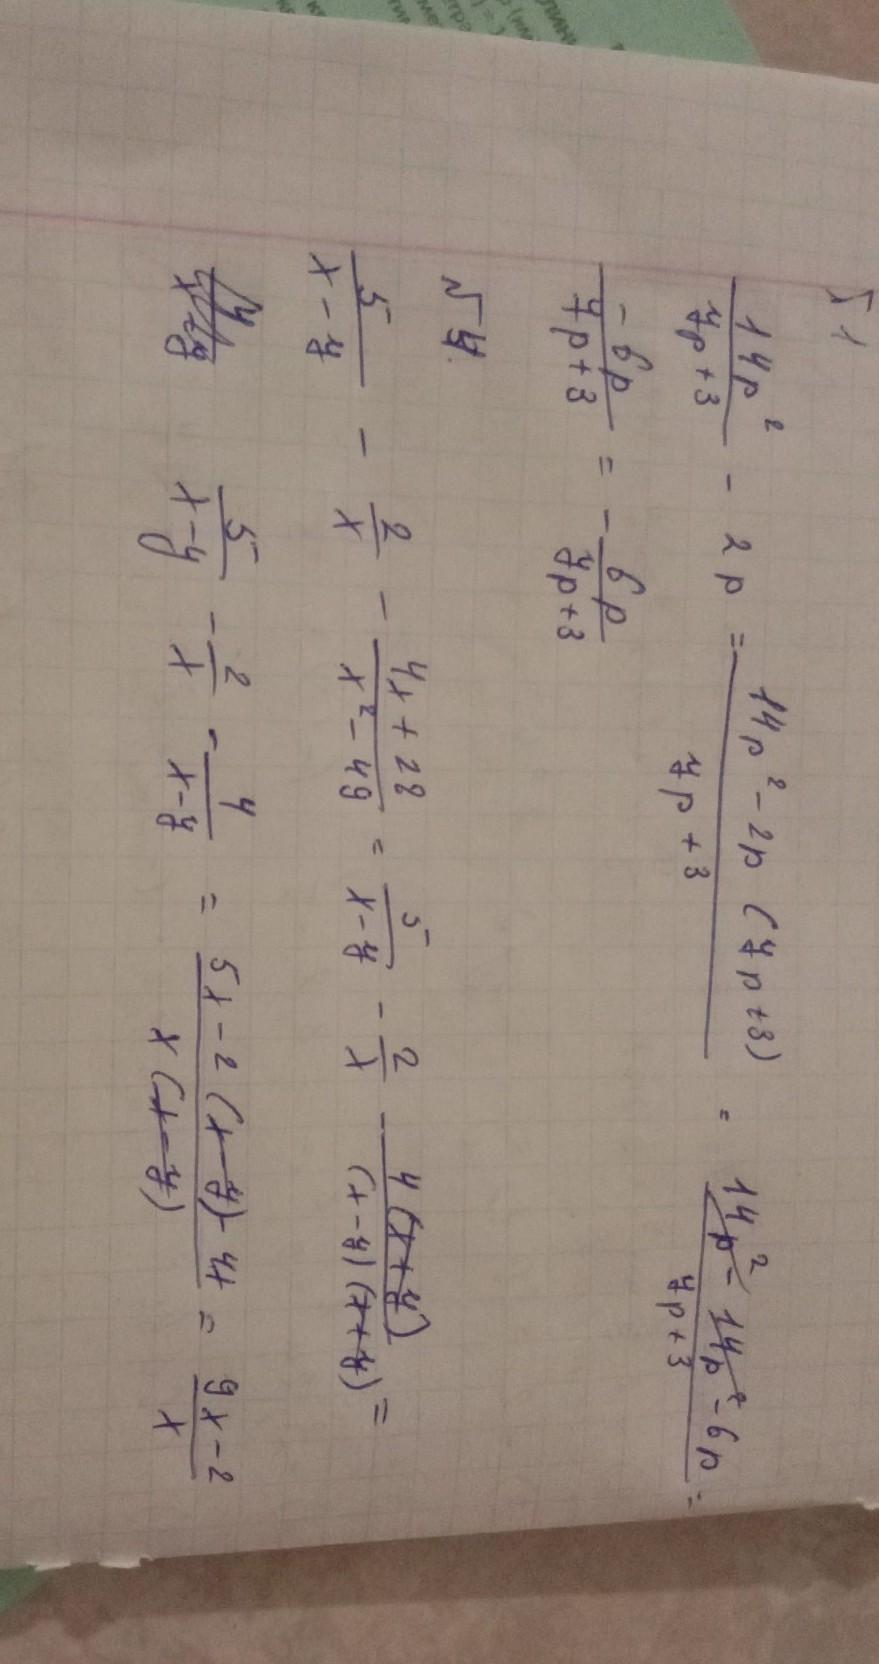 №1
14p²/(7p+3) - 2p = (14p² - 2p(7p+3))/(7p+3) = (14p² - 14p² - 6p)/(7p+3) =
-6p/(7p+3) = - 6p/(7p+3)
№7.
5/(x-7) - 2/x - (4x+28)/(x²-49) = 5/(x-7) - 2/x - 4(x+7)/((x-7)(x+7)) =
5/(x-7) - 2/x - 4/(x-7) = (5x-2(x-7)-4x)/(x(x-7)) = (9x-2)/x